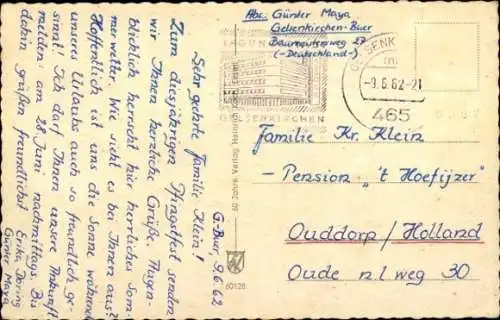 G.-Buer, 9.6.62
Sehr geehrte Familie Klein!
Zum diesjährigen Pfingstfest senden
wir Ihnen herzliche Grüße. Augen-
blicklich herrscht hier herrliches Som-
merwetter. Wie sieht es bei Ihnen aus?
Hoffentlich ist uns die Sonne während
unseres Urlaubs auch so freundlich ge-
sinnt. Ich darf Ihnen unsere Ankunft
melden: am 28. Juni nachmittags. Bis
dahin grüßen freundlichst Erika Döring
Günter Maya
Abs. Günter Maya
Gelsenkirchen-Buer
Baumeisterweg 27
(-Deutschland-)
TAGUN
GELSENKIRCHEN
GELSENK
-9.6.62-21
465
Familie Kr. Klein
-Pension "'t Hoefijzer"
Ouddorp/Holland
Oude n.l weg 30
60128